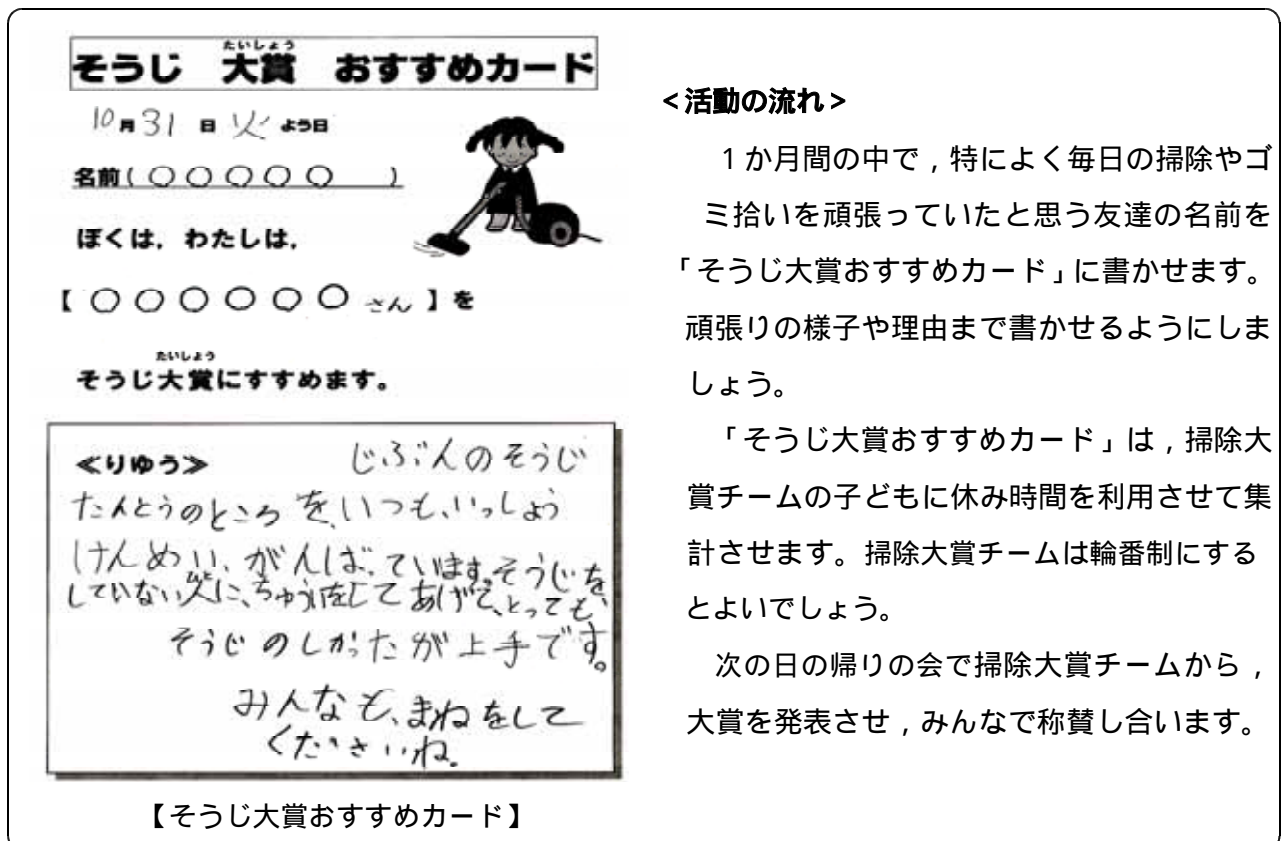 たいしょう
そうじ 大賞 おすすめカード
10月31日火よう日
名前(○○○○○ )
ぼくは,わたしは,
【○○○○○○さん】を
たいしょう
そうじ大賞にすすめます。
≪りゆう≫ じぶんのそうじ
たんとうのところを、いつも、いっしょう
けんめい、がんばっています。そうじを、
していない人に、ちゅういをしてあげて、とっても、
そうじのしかたが上手です。
みんなも、まねをして
くださいね。
【そうじ大賞おすすめカード】
<活動の流れ>
1か月間の中で,特によく毎日の掃除やゴ
ミ拾いを頑張っていたと思う友達の名前を
「そうじ大賞おすすめカード」に書かせます。
頑張りの様子や理由まで書かせるようにしま
しょう。
「そうじ大賞おすすめカード」は,掃除大
賞チームの子どもに休み時間を利用させて集
計させます。掃除大賞チームは輪番制にする
とよいでしょう。
次の日の帰りの会で掃除大賞チームから,
大賞を発表させ,みんなで称賛し合います。